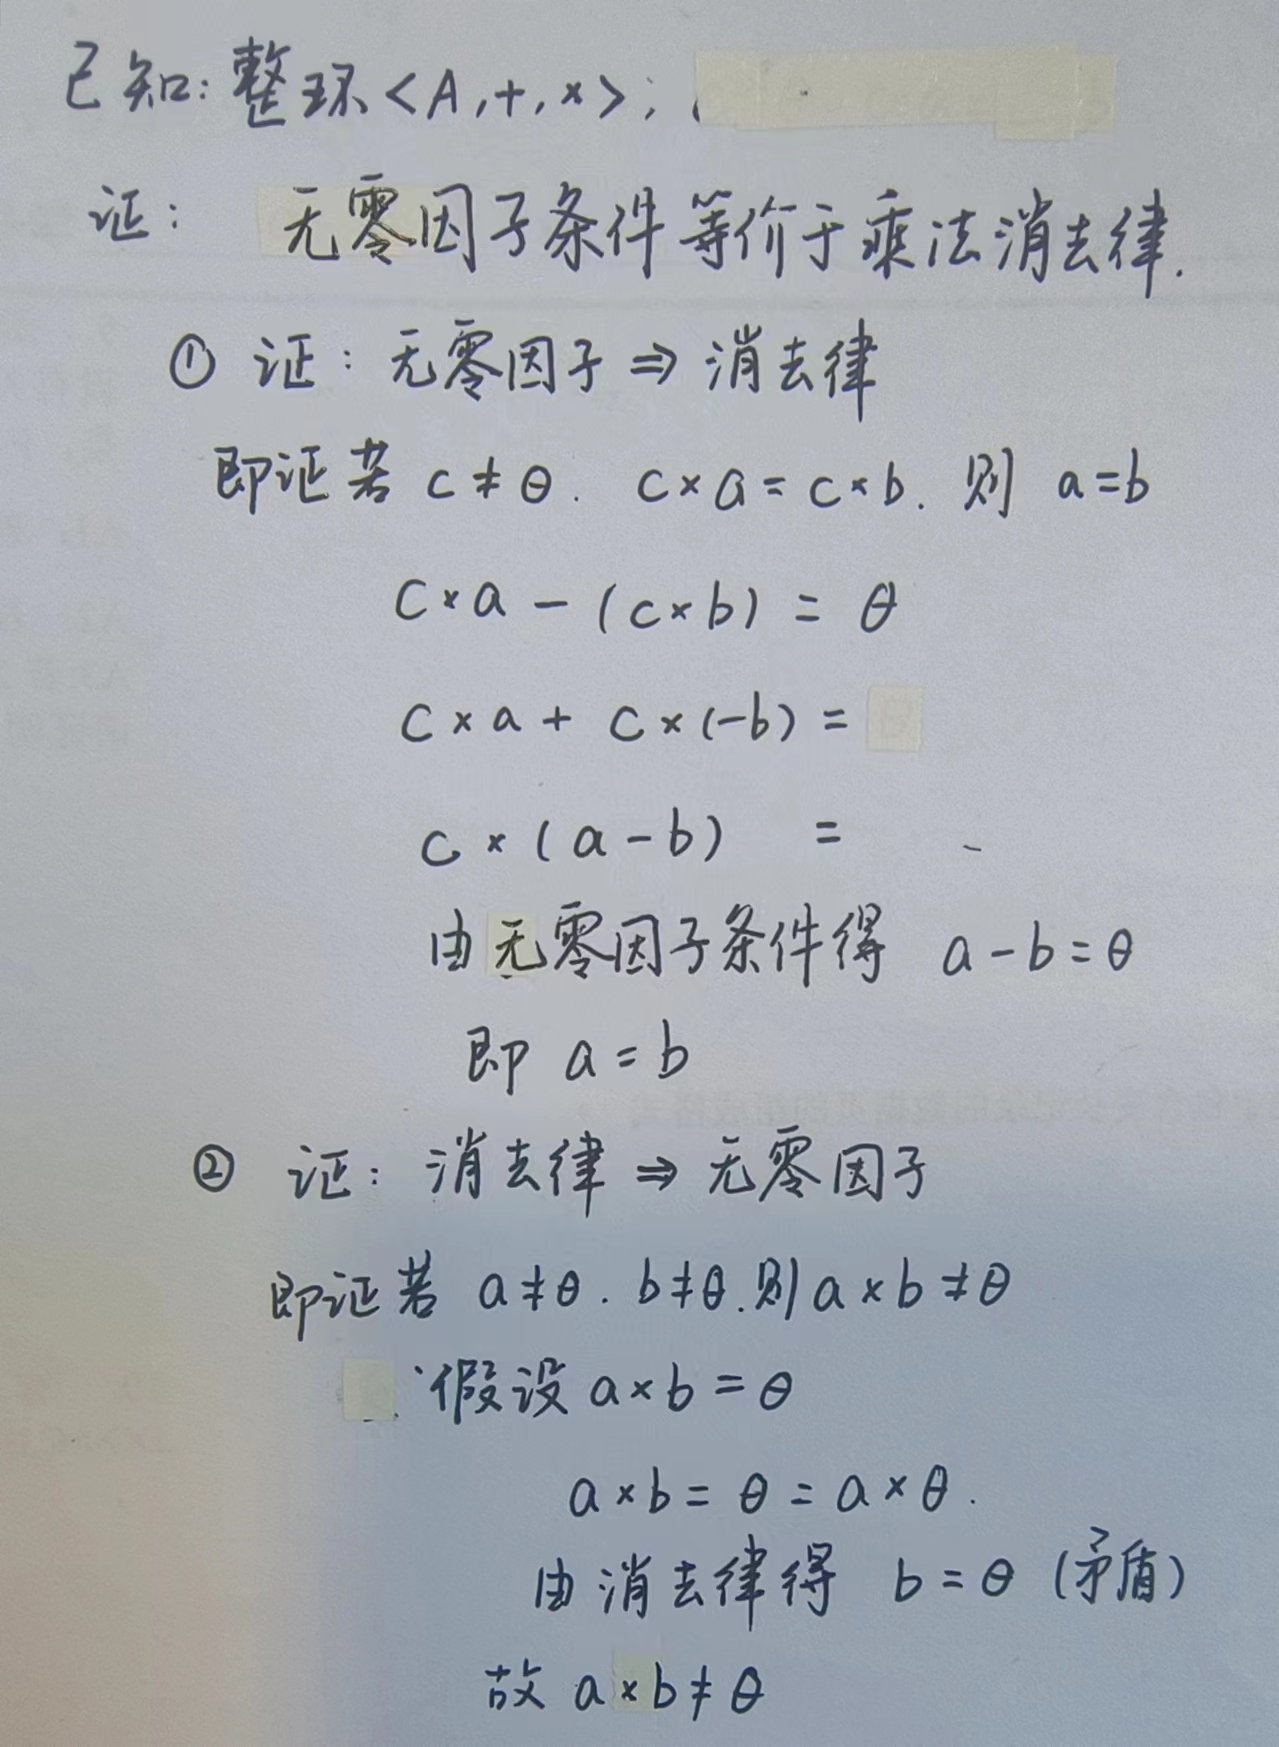 已知: 整环<A,+,×>;
证: 无零因子条件等价于乘法消去律.
① 证: 无零因子 ⇒ 消去律
即证若 c≠θ. c×a=c×b. 则 a=b
c×a-(c×b) = θ
c×a+ c×(-b) =
c×(a-b) =
由无零因子条件得 a-b=θ
即 a=b
② 证: 消去律 ⇒ 无零因子
即证若 a≠θ. b≠θ.则a×b≠θ
假设a×b=θ
a×b=θ=a×θ.
由消去律得 b=θ (矛盾)
故 a×b≠θ